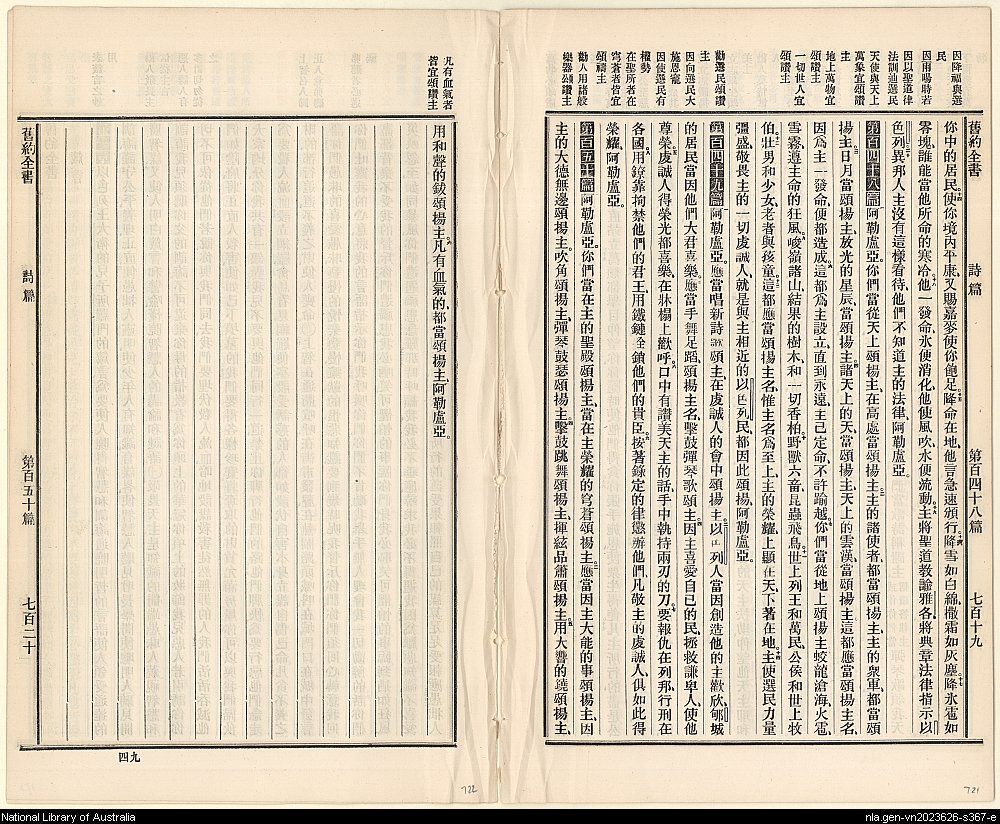 舊約全書 詩篇 第百四十八篇 七百十九
因降福與選民
因雨暘時若
因以聖道律法訓迪選民
天使與天上萬象宜頌讚主
地上萬物宜頌讚主
一切世人宜頌讚主
勸選民頌讚主
因向選民大施恩寵
因使選民有權勢
在聖所者在穹蒼者皆宜頌禱主
勸人用諸般樂器頌讚主
你中的居民、使你境內平康、又賜嘉麥使你飽足、降命在地、他言急速頒行、降雪如白綿、撒霜如灰塵、降氷雹如
零塊、誰能當他所命的寒冷、他一發命、氷便消化、他使風吹、水便流動、主將聖道教諭雅各、將典章法律指示以
色列、異邦人主沒有這樣看待、他們不知道主的法律、阿勒盧亞。
第百四十八篇 阿勒盧亞、你們當從天上頌揚主、在高處當頌揚主、主的諸使者都當頌揚主、主的衆軍都當頌
揚主、日月當頌揚主、放光的星辰、當頌揚主、諸天上的天當頌揚主、天上的雲漢當頌揚主、這都應當頌揚主名、
因為主一發命便都造成、這都為主設立、直到永遠、主已定命、不許踰越、你們當從地上頌揚主、蛟龍滄海、火雹
雪霧、遵主命的狂風、峻嶺諸山、結果的樹木、和一切香柏、野獸六畜、昆蟲飛鳥、世上列王和萬民、公侯和世上牧
伯、壯男和少女、老者與孩童、這都應當頌揚主名、惟主名為至上、主的榮耀、上顯在天、下著在地、主使選民力量
強盛、敬畏主的一切虔誠人、就是與主相近的以色列民、都因此頌揚、阿勒盧亞。
第百四十九篇 阿勒盧亞、應當唱新詩歌頌主、在虔誠人的會中頌揚主、以色列人當因創造他的主歡欣、郇城
的居民、當因他們大君喜樂、應當手舞足蹈頌揚主名、擊鼓彈琴歌頌主、因主喜愛自己的民、拯救謙卑人、使他
尊榮、虔誠人得榮光都喜樂、在牀榻上歡呼、口中有讚美天主的話、手中執持兩刃的刀、要報仇在列邦、行刑在
各國、用鐐靠拘禁他們的君王、用鐵鏈全鎖他們的貴臣、按著錄定的律懲辦他們、凡敬主的虔誠人、俱如此得
榮耀、阿勒盧亞。
第百五十篇 阿勒盧亞、你們當在主的聖殿頌揚主、當在主榮耀的穹蒼頌揚主、應當因主大能的事頌揚主、因
主的大德無邊頌揚主、吹角頌揚主、彈琴鼓瑟頌揚主、擊鼓跳舞頌揚主、揮絃品簫頌揚主、用大響的鐃頌揚主、
721
凡有血氣者皆宜頌讚主
用和聲的鈸頌揚主、凡有血氣的、都當頌揚主、阿勒盧亞。
舊約全書 詩篇 第百五十篇 七百二十
九四
722
National Library of Australia
nla.gen-vn2023626-s367-e